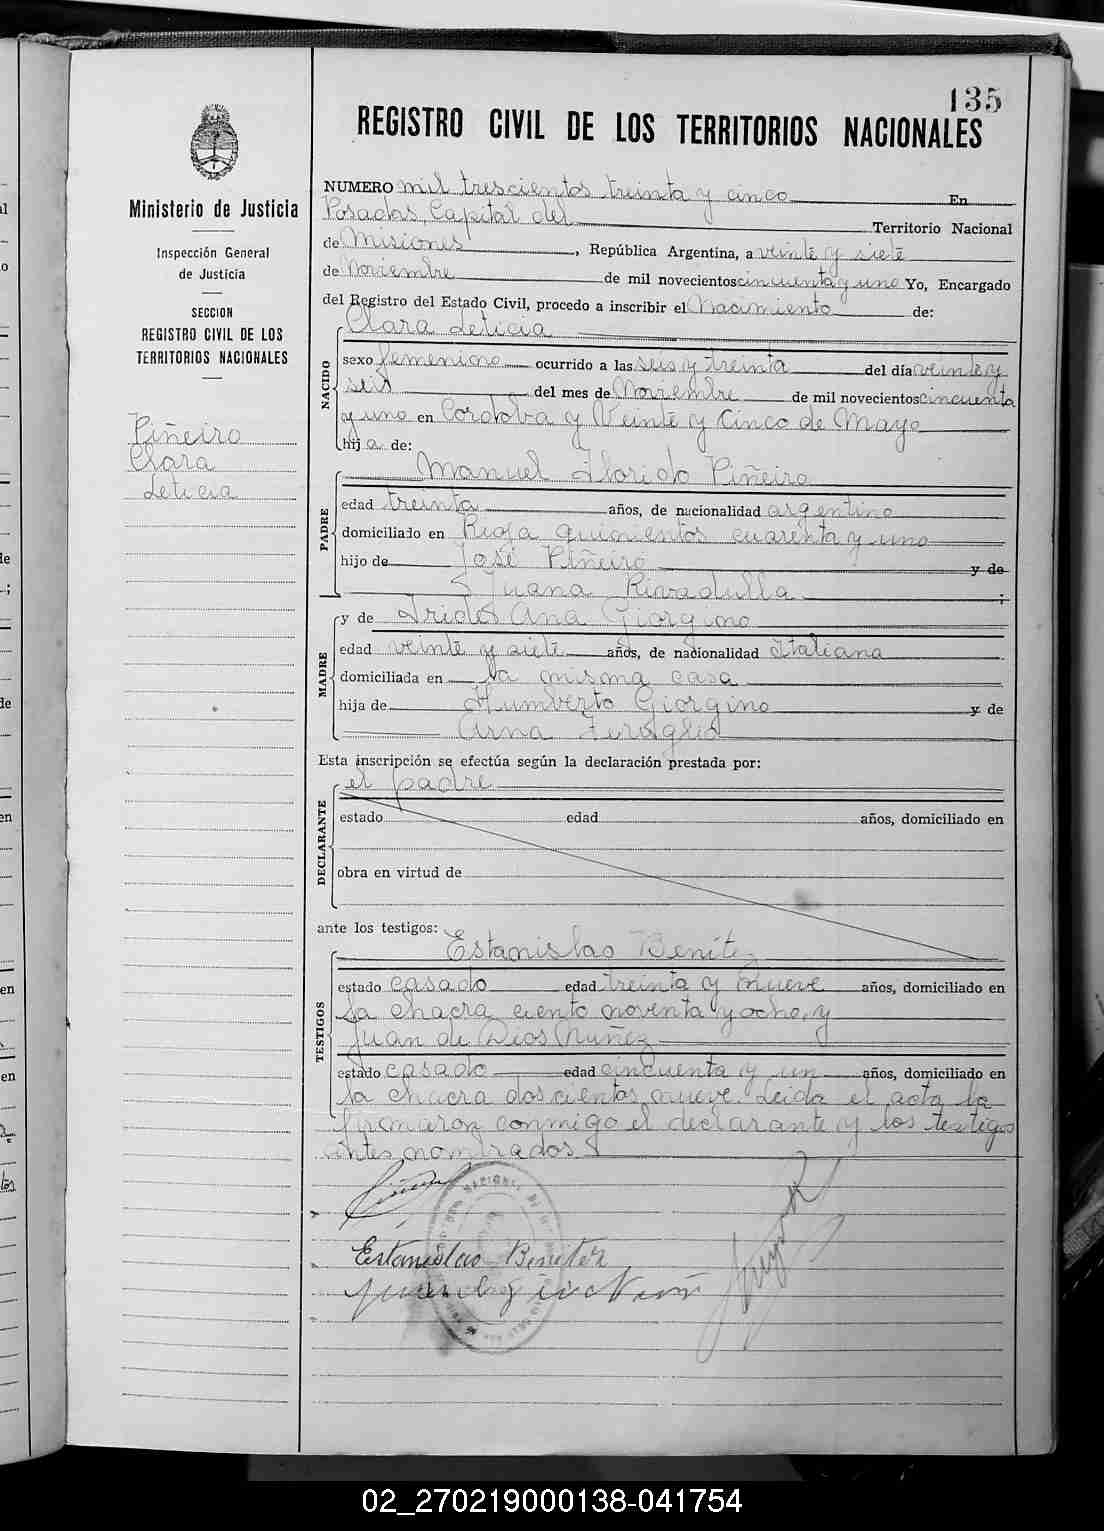 135
REGISTRO CIVIL DE LOS TERRITORIOS NACIONALES
Ministerio de Justicia
Inspección General
de Justicia
SECCION
REGISTRO CIVIL DE LOS
TERRITORIOS NACIONALES
Piñeiro
Clara
Leticia
NUMERO mil trescientos treinta y cinco En
Posadas, Capital del Territorio Nacional
de Misiones, República Argentina, a veinte y siete
de Noviembre de mil novecientos cincuenta y uno Yo, Encargado
del Registro del Estado Civil, procedo a inscribir el Nacimiento de:
NACIDO
Clara Leticia
sexo femenino ocurrido a las seis y treinta del día veinte y
seis del mes de Noviembre de mil novecientos cincuenta
y uno en Cordoba y Veinte y Cinco de Mayo
hija de:
PADRE
Manuel Florido Piñeiro
edad treinta años, de nacionalidad argentino
domiciliado en Rioja quinientos cuarenta y uno
hijo de José Piñeiro y de
Juana Rivadulla ;
MADRE
y de Irides Ana Giorgino
edad veinte y siete años, de nacionalidad Italiana
domiciliada en la misma casa
hija de Humberto Giorgino y de
Anna
Esta inscripción se efectúa según la declaración prestada por:
DECLARANTE
el padre
estado edad años, domiciliado en
obra en virtud de
ante los testigos:
TESTIGOS
Estanislao Benítez
estado casado edad treinta y nueve años, domiciliado en
la chacra ciento noventa y ocho, y
Juan de Dios Nuñez
estado casado edad cincuenta y un años, domiciliado en
la chacra doscientos nueve. Leida el acta la
firmaron conmigo el declarante y los testigos
antes nombrados.
Piñeiro
Estanislao Benitez
02_270219000138-041754